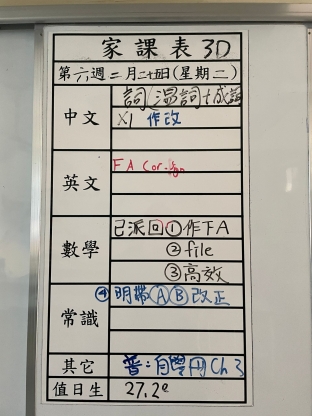 家課表 3D
第六週二月二十五日(星期二)
中文
詞(溫詞+成語
X1 作改
英文
F A Cor. sign
數學
已派回①作下A
②file
③高效
常識
④明帶ⒶⒷ改正
其它
普:自學冊Ch 3
值日生
27.2e